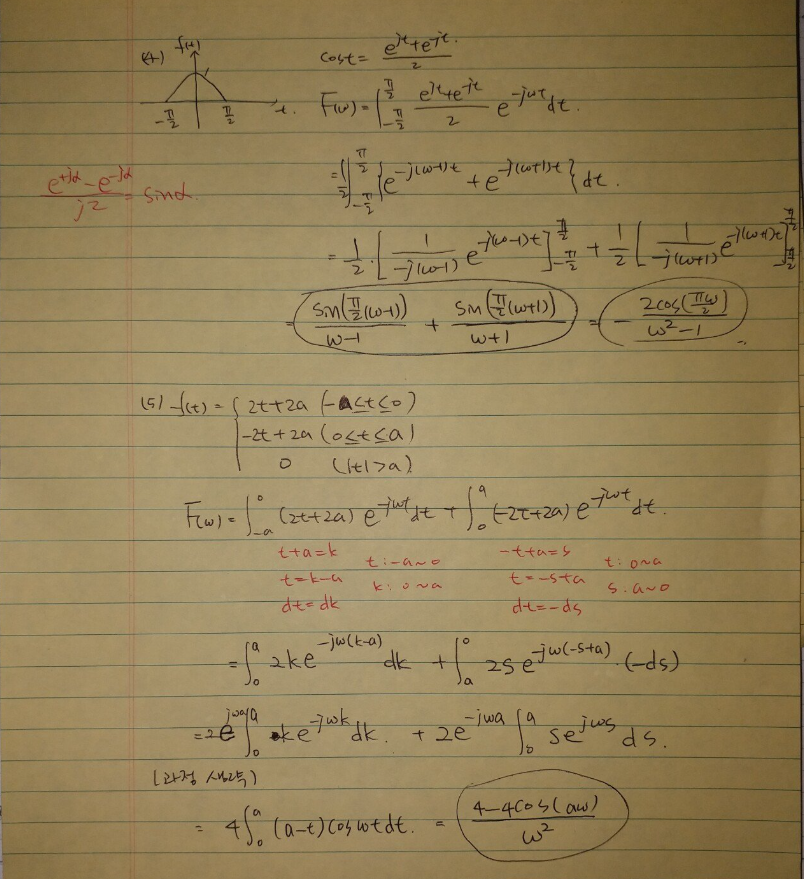 (4) f(t) 1 -π/2 π/2 t.
cost = (e^{jt}+e^{-jt})/2
F(ω) = ∫_{-π/2}^{π/2} (e^{jt}+e^{-jt})/2 e^{-jωt} dt.
= 1/2 ∫_{-π/2}^{π/2} {e^{-j(ω-1)t} + e^{-j(ω+1)t}} dt.
(e^{+jα} - e^{-jα})/j2 = sinα.
= 1/2 · [1/(-j(ω-1)) e^{-j(ω-1)t}]_{-π/2}^{π/2} + 1/2 [1/(-j(ω+1)) e^{-j(ω+1)t}]_{-π/2}^{π/2}
= sin(π/2(ω-1))/(ω-1) + sin(π/2(ω+1))/(ω+1) = - 2cos(πω/2)/(ω²-1)
(5) f(t) = { 2t+2a (-a≤t≤0)
-2t+2a (0≤t≤a)
0 (|t|>a)
F(ω) = ∫_{-a}^{0} (2t+2a) e^{-jωt} dt + ∫_{0}^{a} (-2t+2a) e^{-jωt} dt.
t+a=k -t+a=s
t=k-a t:-a~0 k:0~a t=-s+a t:0~a s.a~0
dt=dk dt=-ds
= ∫_{0}^{a} 2k e^{-jω(k-a)} dk + ∫_{a}^{0} 2s e^{-jω(-s+a)} · (-ds)
= 2e^{jωa} ∫_{0}^{a} k e^{-jωk} dk. + 2e^{-jωa} ∫_{0}^{a} s e^{jωs} ds.
(과정 생략)
= 4∫_{0}^{a} (a-t) cosωt dt. = (4-4cos(aω))/ω²